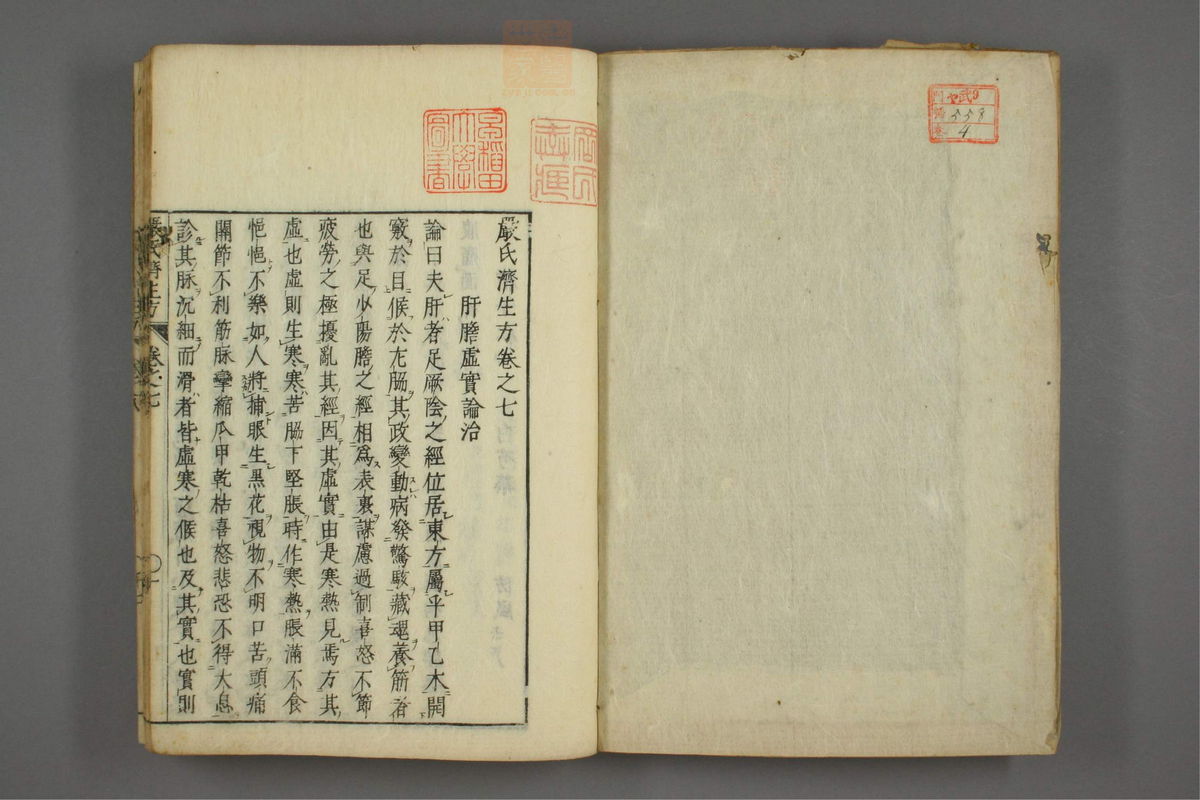 ヤ9
558
4
早稲田
大學
圖書
嚴氏濟生方卷之七
肝膽虛實論治
論曰夫肝者足厥陰之經位居東方屬乎甲乙木開
竅於目候於左脇其政變動病發驚駭藏魂養筋者
也與足少陽膽之經相爲表裏謀慮過制喜怒不節
疲勞之極擾亂其經因其虛實由是寒熱見焉方其
虛也虛則生寒寒苦脇下堅脹時作寒熱脹滿不食
悒悒不樂如人將捕眼生黑花視物不明口苦頭痛
關節不利筋脉攣縮爪甲乾枯喜怒悲恐不得大息
診其脉沉細而滑者皆虛寒之候也及其實也實則
嚴氏濟生方 卷之七